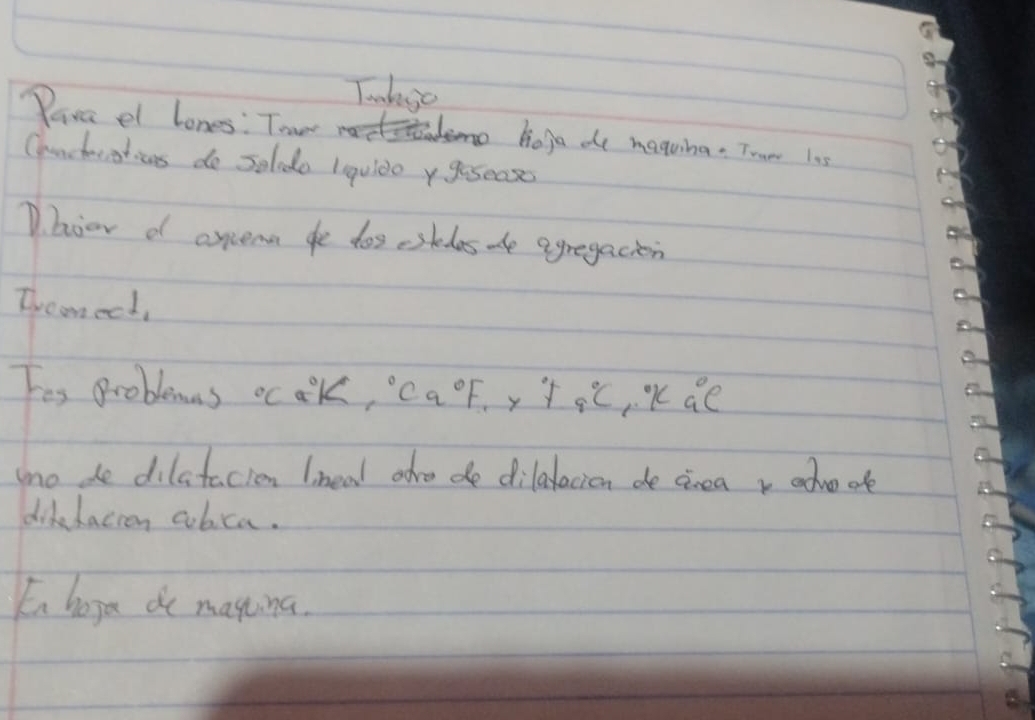 Trabajo
Para el lunes: Traer hoja de maquina. Traer las
Caracteristicas de solido liquido y gaseoso
Dibujar el esquema de los estados de agregación
Tres problemas °C a °K, °C a °F, y °F a °C, °K a °C
uno de dilatacion lineal otro de dilatacion de área y otro de
dilatacion cubica.
En hoja de maquina.